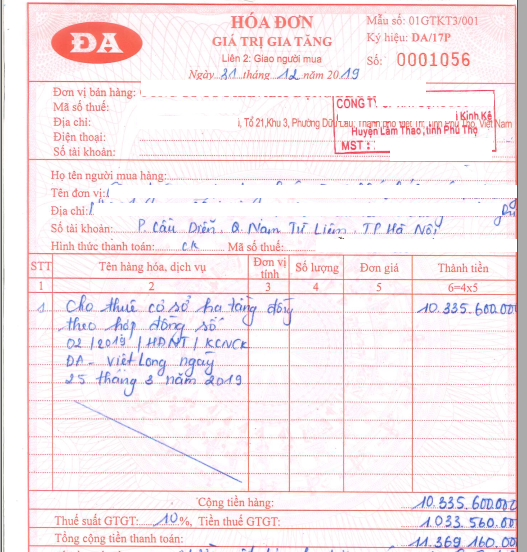 ĐA
HÓA ĐƠN
GIÁ TRỊ GIA TĂNG
Liên 2: Giao người mua
Ngày 31 tháng 12 năm 2019
Mẫu số: 01GTKT3/001
Ký hiệu: DA/17P
Số: 0001056
Đơn vị bán hàng:
Mã số thuế:
Địa chỉ: Tổ 21, Khu 3, Phường Dữu Lâu, Thành phố Việt Trì, tỉnh Phú Thọ, Việt Nam
Điện thoại:
Số tài khoản:
CÔNG TY
Kinh Kệ
Huyện Lâm Thao, tỉnh Phú Thọ
MST :
Họ tên người mua hàng:
Tên đơn vị:
Địa chỉ:
Số tài khoản: P. Cầu Diễn, Q. Nam Từ Liêm, TP Hà Nội
Hình thức thanh toán: CK Mã số thuế:
STT Tên hàng hóa, dịch vụ Đơn vị tính Số lượng Đơn giá Thành tiền
1 2 3 4 5 6=4x5
1 Cho thuê cơ sở hạ tầng đồng 10.335.600.000
theo hợp đồng số
02/2019/HĐNT/KCNCK
ĐA - Việt Long ngày
25 tháng 3 năm 2019
Cộng tiền hàng: 10.335.600.000
Thuế suất GTGT: 10 %, Tiền thuế GTGT: 1.033.560.00
Tổng cộng tiền thanh toán: 11.369.160.00